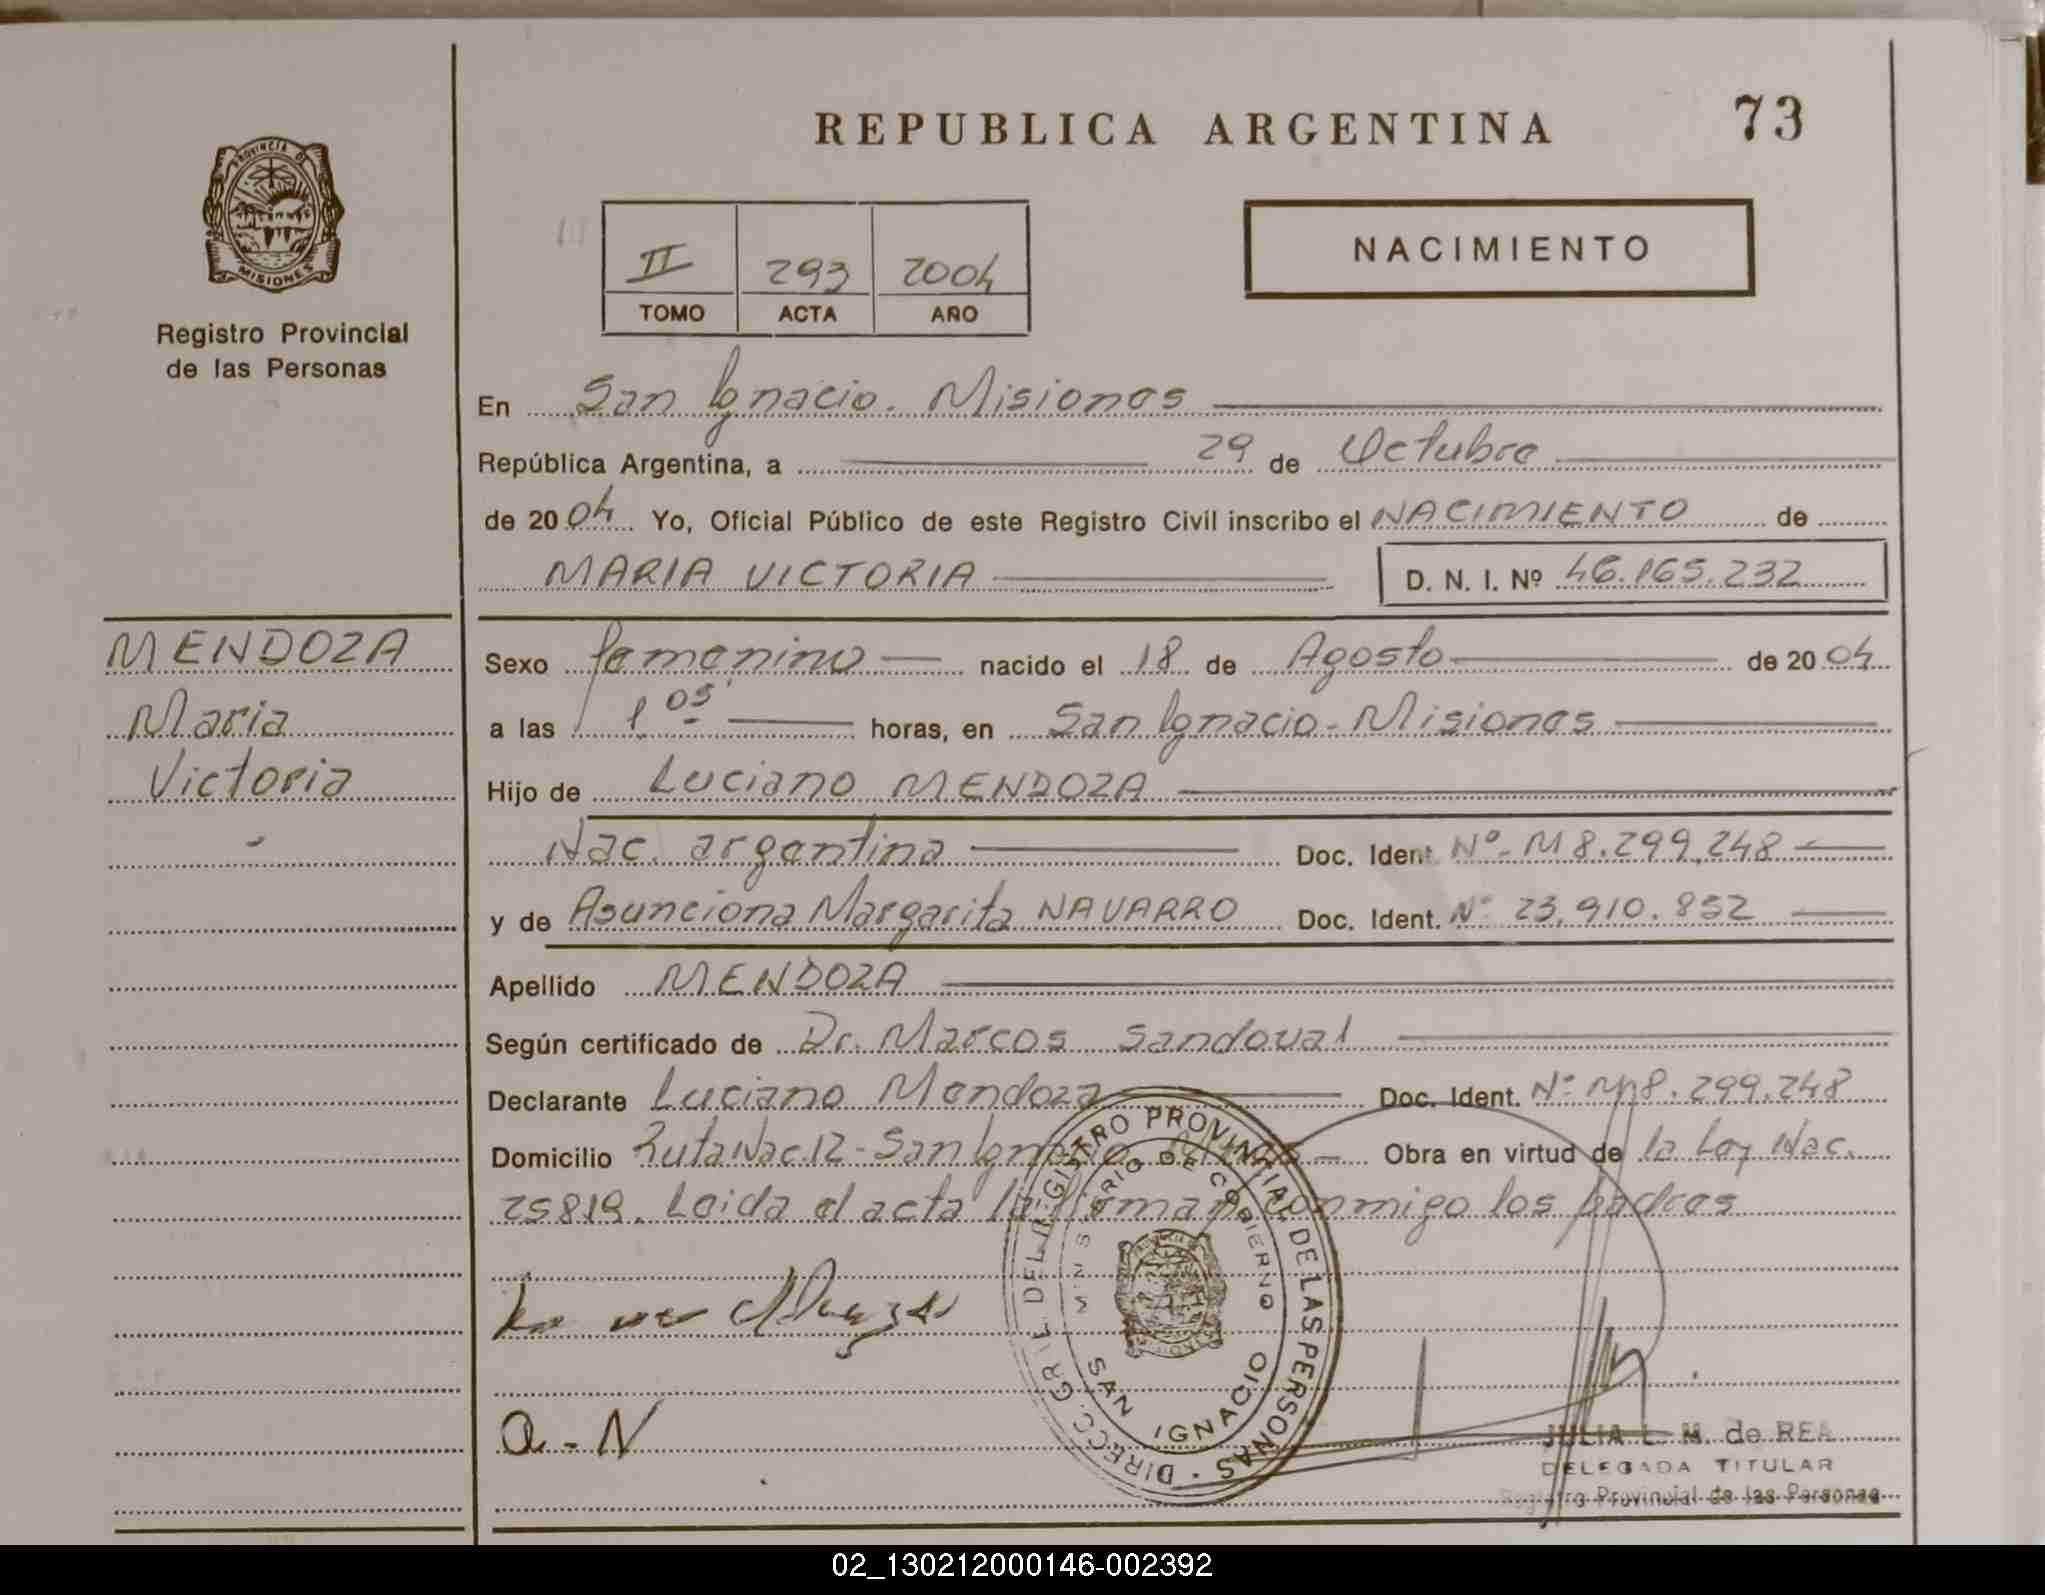 REPUBLICA ARGENTINA 73
PROVINCIA DE
MISIONES
Registro Provincial
de las Personas
II 293 2004
TOMO ACTA AÑO
NACIMIENTO
En San Ignacio. Misiones
República Argentina, a 29 de Octubre
de 2004 Yo, Oficial Público de este Registro Civil inscribo el NACIMIENTO de
MARIA VICTORIA D. N. I. Nº 46.165.232
MENDOZA
Maria
Victoria
Sexo femenino nacido el 18 de Agosto de 2004
a las 1.05 horas, en San Ignacio - Misiones
Hijo de Luciano MENDOZA
Nac. argentina Doc. Ident. Nº M 8.299.248
y de Asunciona Margarita NAVARRO Doc. Ident. Nº 23.910.852
Apellido MENDOZA
Según certificado de Dr. Marcos Sandoval
Declarante Luciano Mendoza Doc. Ident. Nº M 8.299.248
Domicilio Ruta Nac. 12 - San Ignacio Mnes Obra en virtud de la Ley Nac.
25819. Leida el acta la firman conmigo los padres
DIRECC. GRAL. DEL REGISTRO PROVINCIAL DE LAS PERSONAS
MINISTERIO DE GOBIERNO
SAN IGNACIO
a - N
JULIA L. M. de REA
DELEGADA TITULAR
Registro Provincial de las Personas
02_130212000146-002392